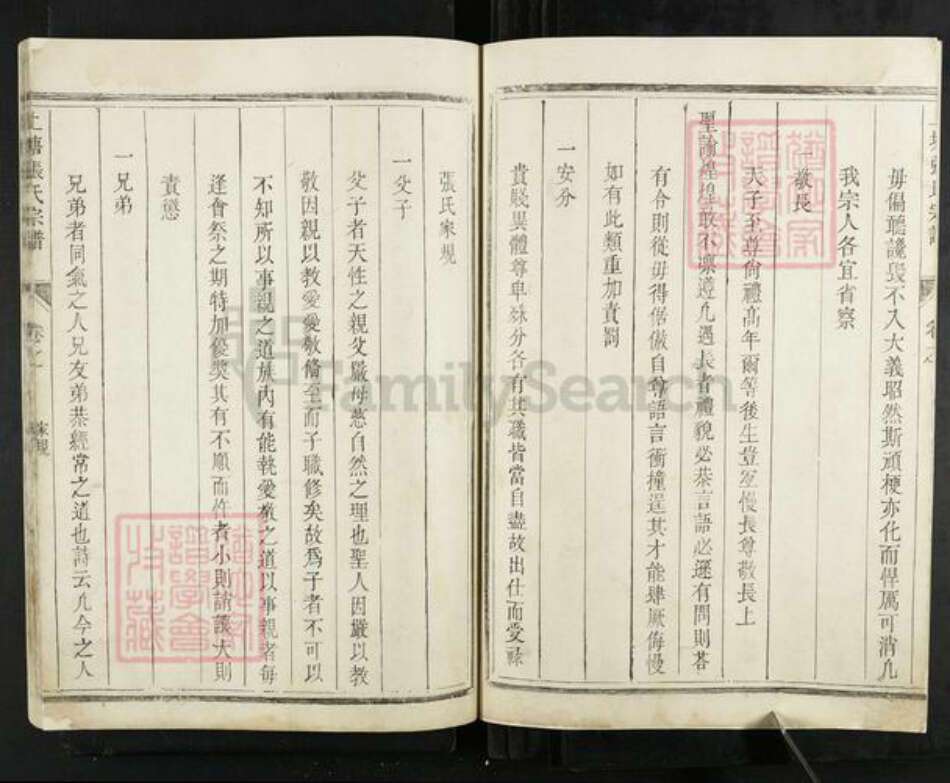 毋偏聽讒毀不入大義昭然斯頑梗亦化而悍厲可消凡
我宗人各宜省察
一敬長
天子至尊尙禮髙年爾等後生豈宜慢長尊敬長上
聖諭煌煌敢不凛遵凡遇長者禮貌必恭言語必遜有問則荅
有合則從毋得倨傲自尊語言衝撞逞其才能肆厥侮慢
如有此類重加責罰
一安分
貴賤異體尊卑殊分各有其職皆當自盡故出仕而愛祿
張氏家規
一父子
父子者天性之親父嚴母慈自然之理也聖人因嚴以教
敬因親以教愛愛敬脩至而子職修矣故爲子者不可以
不知所以事親之道族內有能執愛敬之道以事親者每
逢會祭之期特加優獎其有不順而忤者小則誚讓大則
責懲
一兄弟
兄弟者同氣之人兄友弟恭經常之道也詩云凡今之人
張氏宗譜
卷之一
家規
FamilySearch